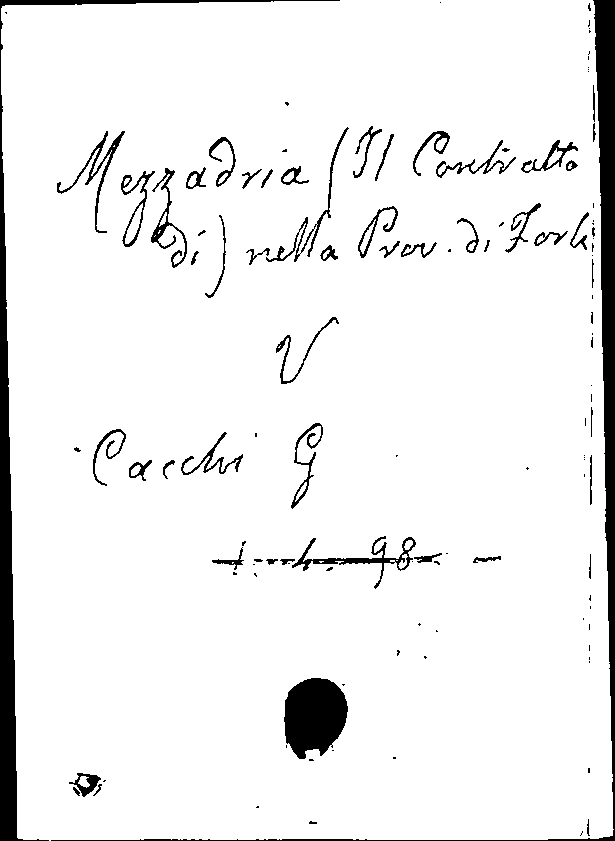 Mezzadria (Il Contratto
di) nella Prov. di Forlì
V
Cacchi G
1. 4. 98